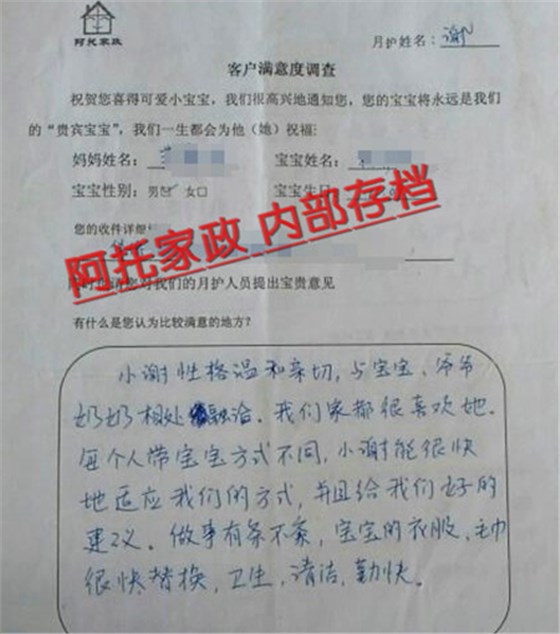 阿托家政
月护姓名：谢
客户满意度调查
祝贺您喜得可爱小宝宝，我们很高兴地通知您，您的宝宝将永远是我们
的“贵宾宝宝”，我们一生都会为他（她）祝福:
妈妈姓名： 宝宝姓名：
宝宝性别：男☑ 女□ 宝宝生日
您的收件详细
阿托家政 内部存档
您对我们的月护人员提出宝贵意见
有什么是您认为比较满意的地方？
小谢性格温和亲切，与宝宝、爷爷
奶奶相处融洽。我们家都很喜欢她。
每个人带宝宝方式不同，小谢能很快
地适应我们的方式，并且给我们好的
建议。做事有条不紊，宝宝的衣服、毛巾
很快替换，卫生，清洁，勤快。